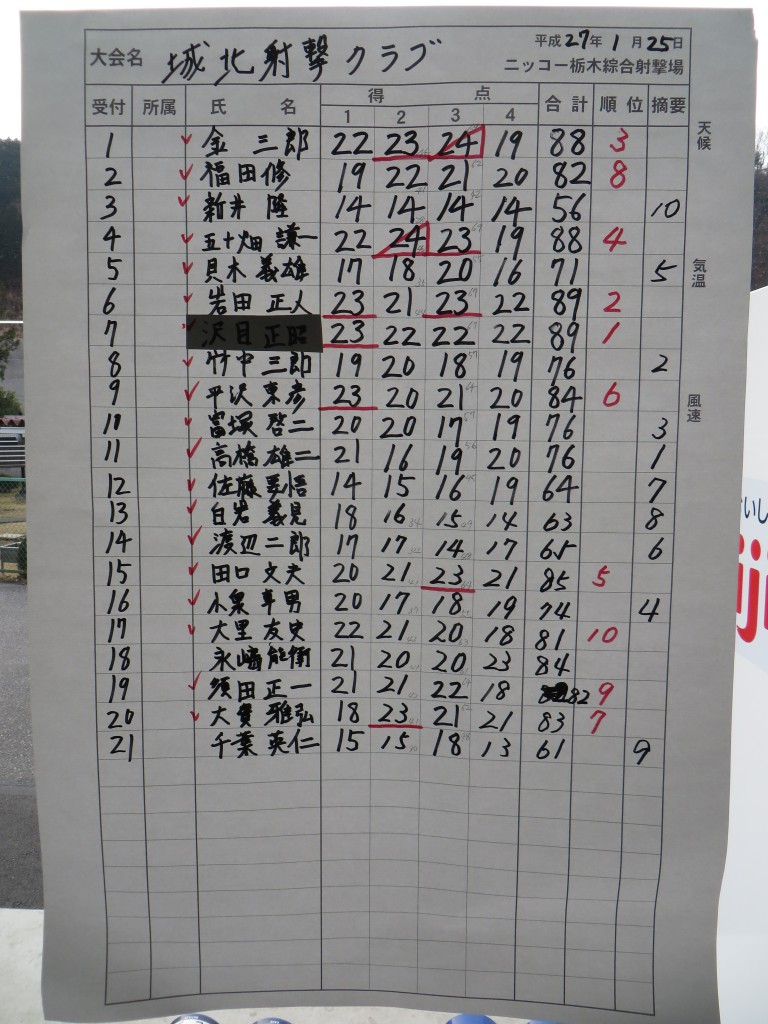 大会名 城北射撃クラブ 平成27年1月25日
ニッコー栃木綜合射撃場
受付 所属 氏名 得点 合計 順位 摘要
1 2 3 4
1 金 三郎 22 23 24 19 88 3
2 福田修 19 22 21 20 82 8
3 新井 隆 14 14 14 14 56 10
4 五十畑 謙一 22 24 23 19 88 4
5 貝木 義雄 17 18 20 16 71 5
6 岩田 正人 23 21 23 22 89 2
7 沢目 正昭 23 22 22 22 89 1
8 竹中 三郎 19 20 18 19 76 2
9 平沢 東彦 23 20 21 20 84 6
10 冨塚 啓二 20 20 17 19 76 3
11 高橋 雄二 21 16 19 20 76 1
12 佐藤 悟 14 15 16 19 64 7
13 白岩 義見 18 16 15 14 63 8
14 渡辺 二郎 17 17 14 17 65 6
15 田口 文夫 20 21 23 21 85 5
16 小泉 幸男 20 17 18 19 74 4
17 大里 友史 22 21 20 18 81 10
18 永嶋 能衛 21 20 20 23 84
19 須田 正一 21 21 22 18 82 9
20 大貫 雅弘 18 23 21 21 83 7
21 千葉 英仁 15 15 18 13 61 9
天候
気温
風速
いし